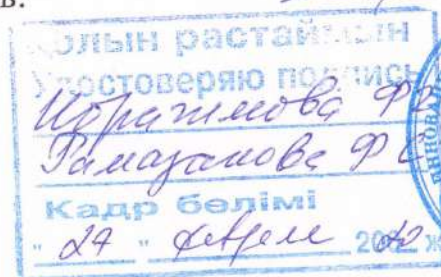 в.
Қолын растаймын
Удостоверяю подпись
Ибрагимова Ф
Рамазанова Ф
Кадр бөлімі
" 27 " 20 ж